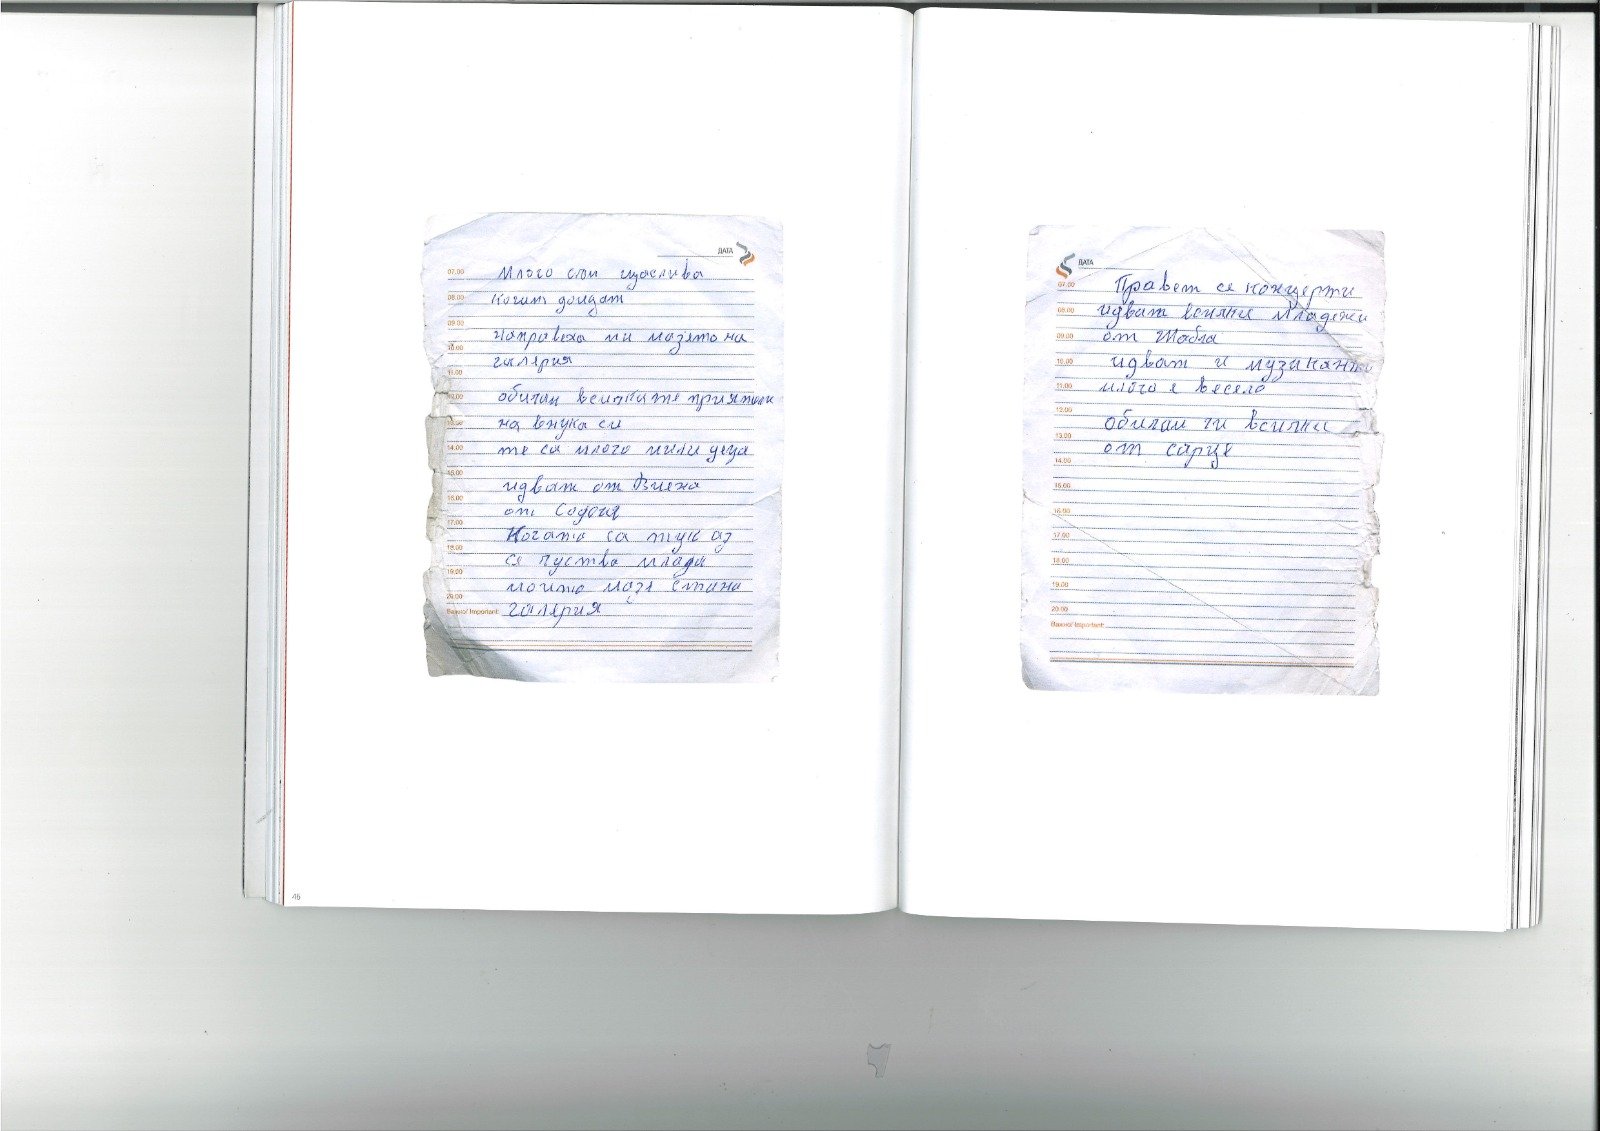 ДАТА
07.00 Много съм щаслива
08.00 когат доидат
09.00 направеха ми мазято на
10.00 галерия
11.00
12.00 обичам всичките приятели
13.00 на внука си
14.00 те са много мили деца
15.00
16.00 идват от Виена
17.00 от София
18.00 Когато са тук аз
19.00 се чуства млада
20.00 моито мазе стана
Важно/ Important: галерия
46
ДАТА
07.00 Правет се концерти
08.00 идват всички младежи
09.00 от Шабла
10.00 идват и музиканти
11.00 много е весело
12.00
13.00 обичам ги всички
14.00 от сарце
15.00
16.00
17.00
18.00
19.00
20.00
Важно/ Important: